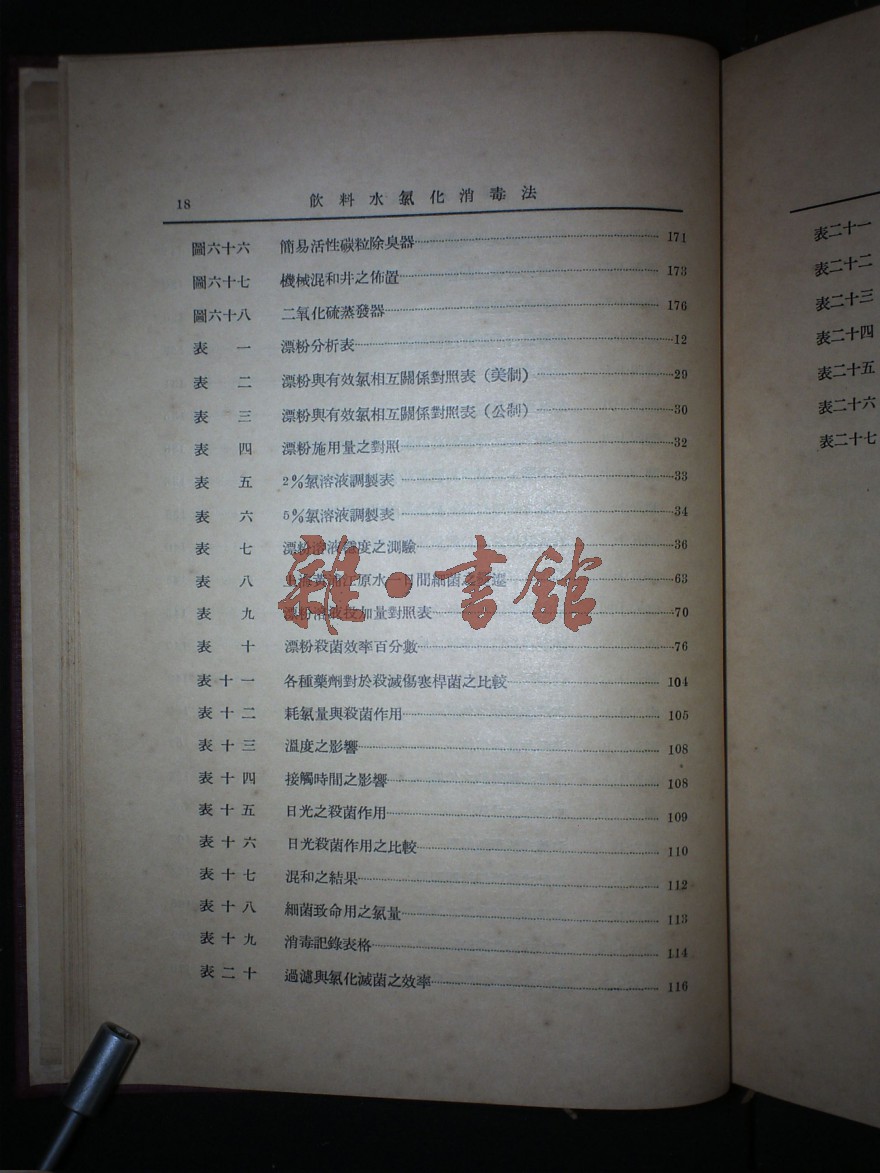 18 飲料水氯化消毒法
圖六十六 簡易活性碳粒除臭器 171
圖六十七 機械混和井之佈置 173
圖六十八 二氧化硫蒸發器 176
表一 漂粉分析表 12
表二 漂粉與有效氯相互關係對照表(美制) 29
表三 漂粉與有效氯相互關係對照表(公制) 30
表四 漂粉施用量之對照 32
表五 2%氯溶液調製表 33
表六 5%氯溶液調製表 34
表七 漂粉溶液 度之測驗 36
表八 上海黃浦江原水一日間細菌之 63
表九 漂粉溶液投加量對照表 70
表十 漂粉殺菌效率百分數 76
表十一 各種藥劑對於殺滅傷寒桿菌之比較 104
表十二 耗氯量與殺菌作用 105
表十三 溫度之影響 108
表十四 接觸時間之影響 108
表十五 日光之殺菌作用 109
表十六 日光殺菌作用之比較 110
表十七 混和之結果 112
表十八 細菌致命用之氯量 113
表十九 消毒記錄表格 114
表二十 過濾與氯化滅菌之效率 116
雜·書館
表二十一
表二十二
表二十三
表二十四
表二十五
表二十六
表二十七